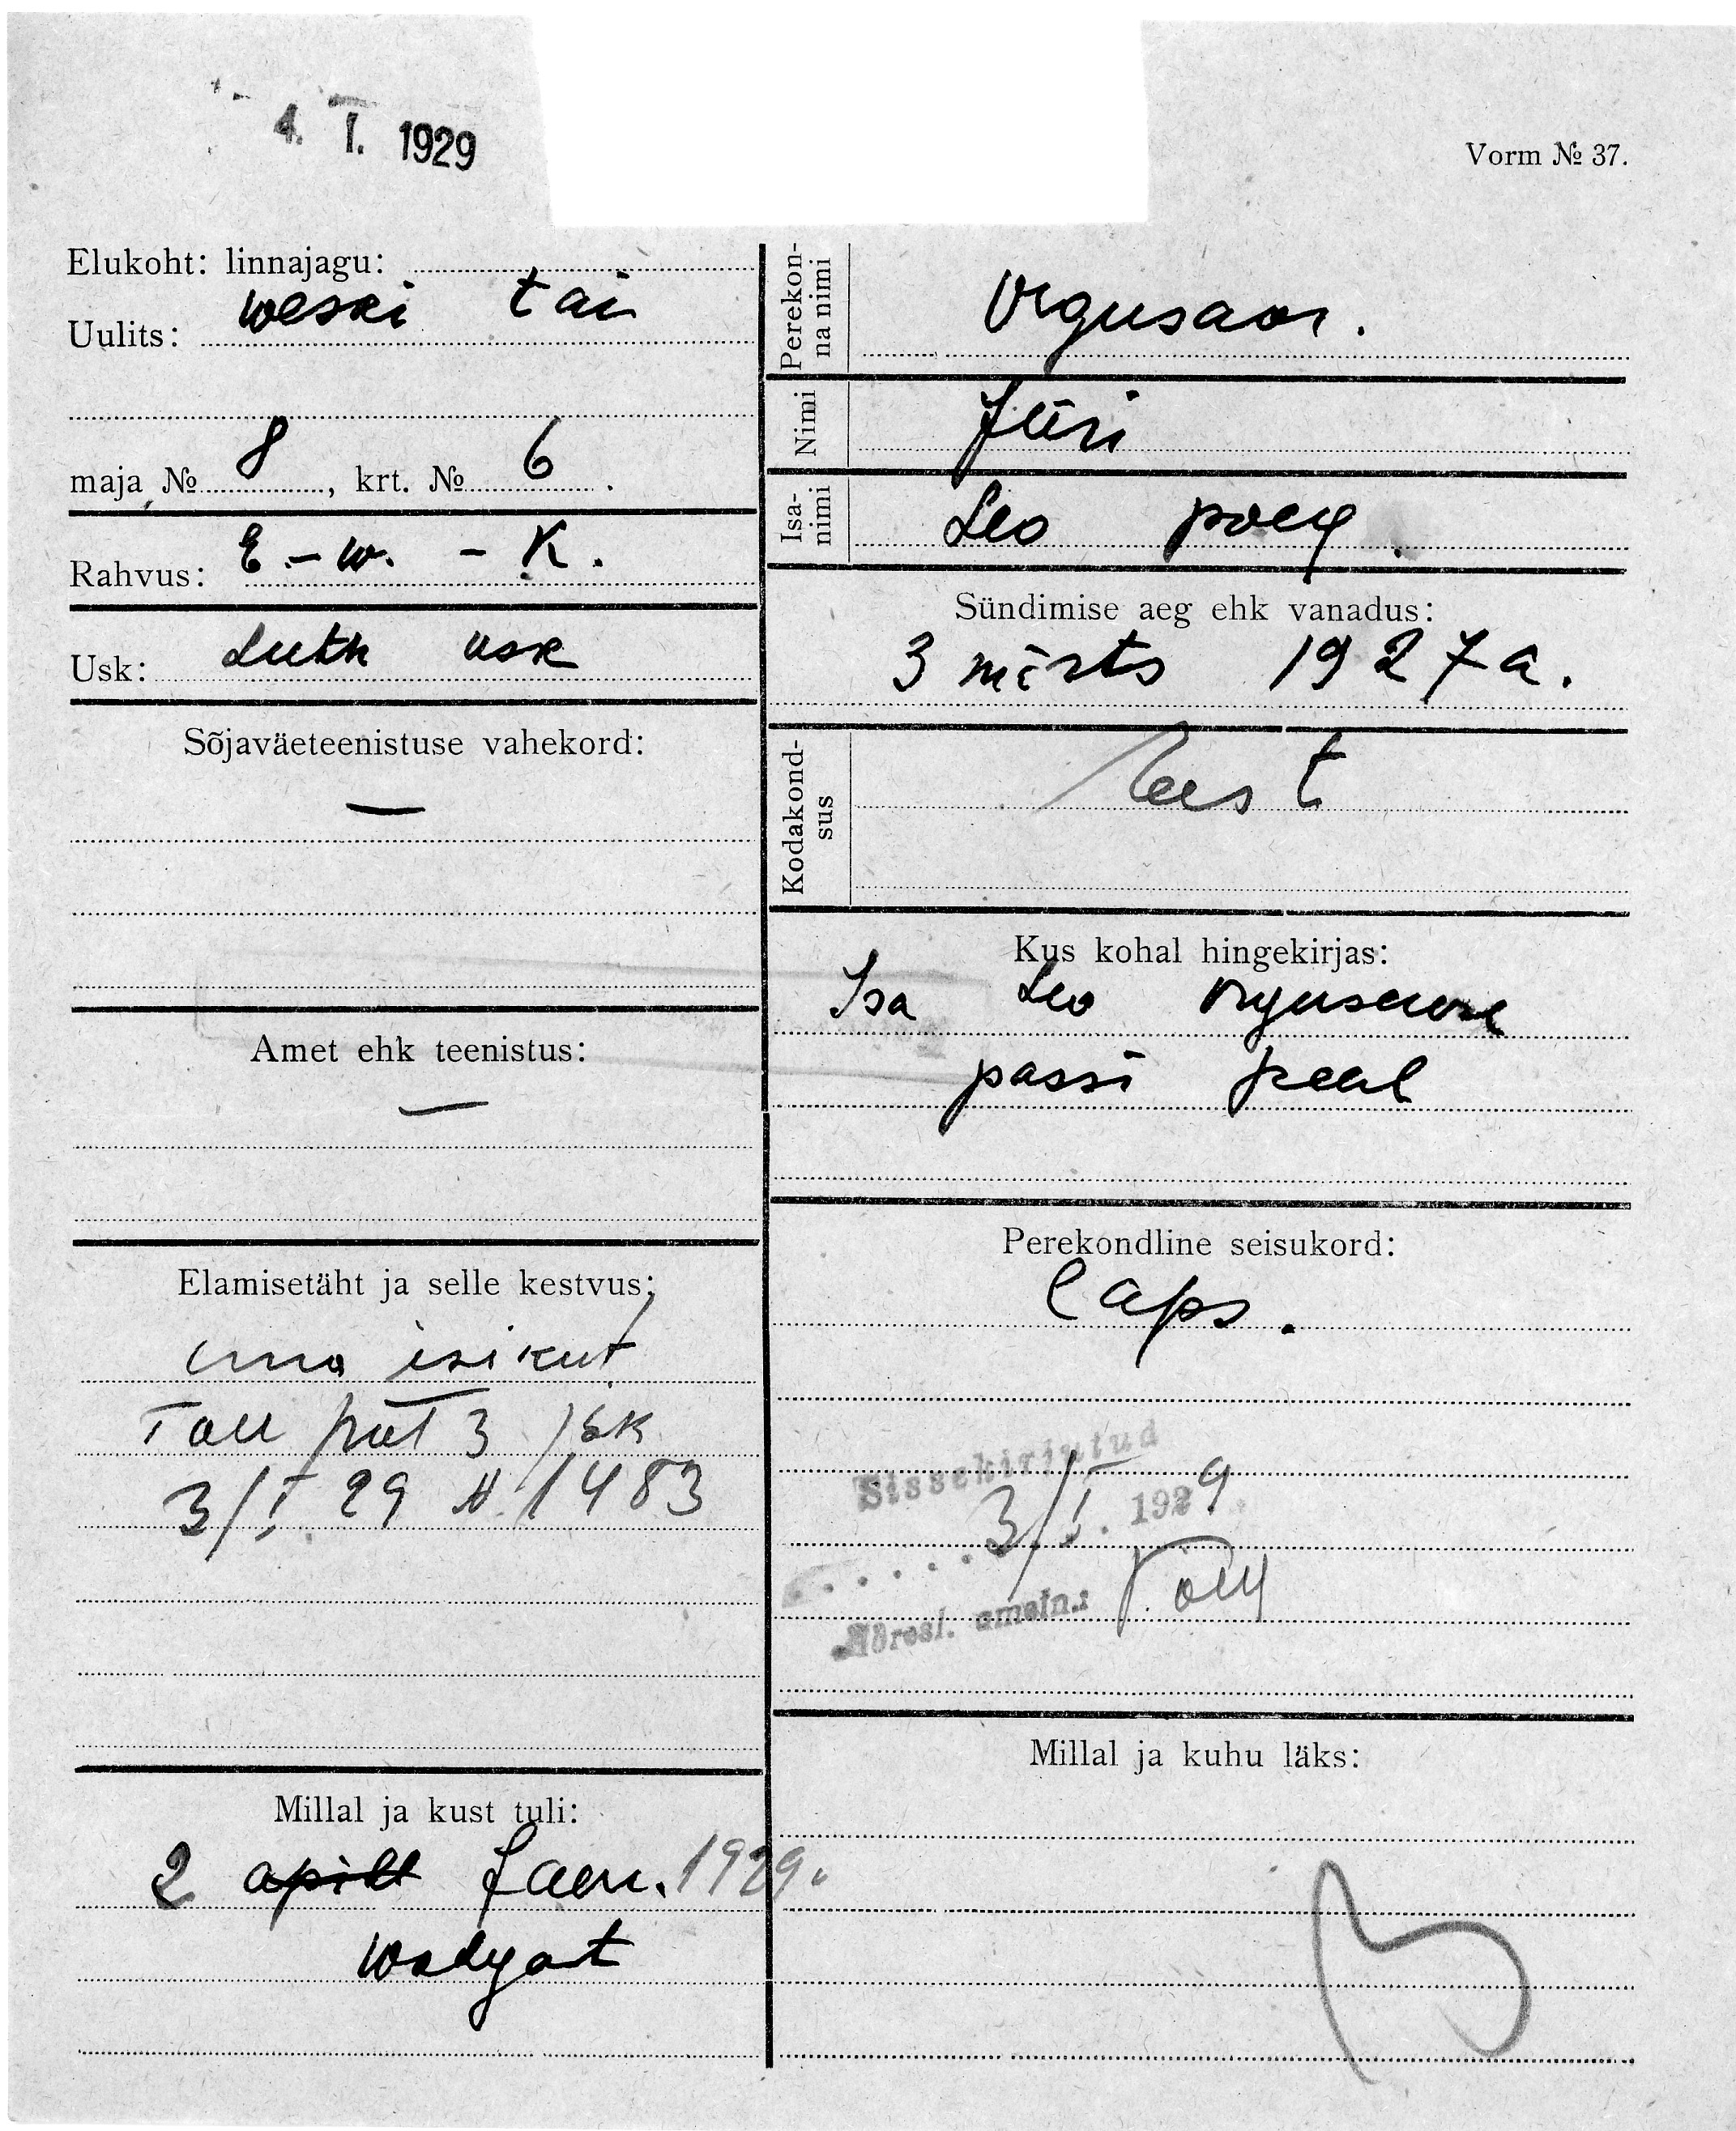 4. I. 1929
Vorm № 37.
Elukoht: linnajagu:
Uulits: weski tän
maja № 8, krt. № 6.
Rahvus: E.-w. - K.
Usk: Luth usk
Sõjaväeteenistuse vahekord:
—
Amet ehk teenistus:
—
Elamisetäht ja selle kestvus:
isikut
Tall 3 jsk
3/I 29 N 1483
Millal ja kust tuli:
2 apill Jaan. 1929.
Perekon-
na nimi
Nimi Jüri
Isa-
nimi Leo poeg.
Sündimise aeg ehk vanadus:
3 märts 1927 a.
Kodakond-
sus Eest
Kus kohal hingekirjas:
Isa Leo
passi peal
Perekondline seisukord:
Laps.
Sissekirjutud
3/I. 1929
ametn.:
Millal ja kuhu läks: